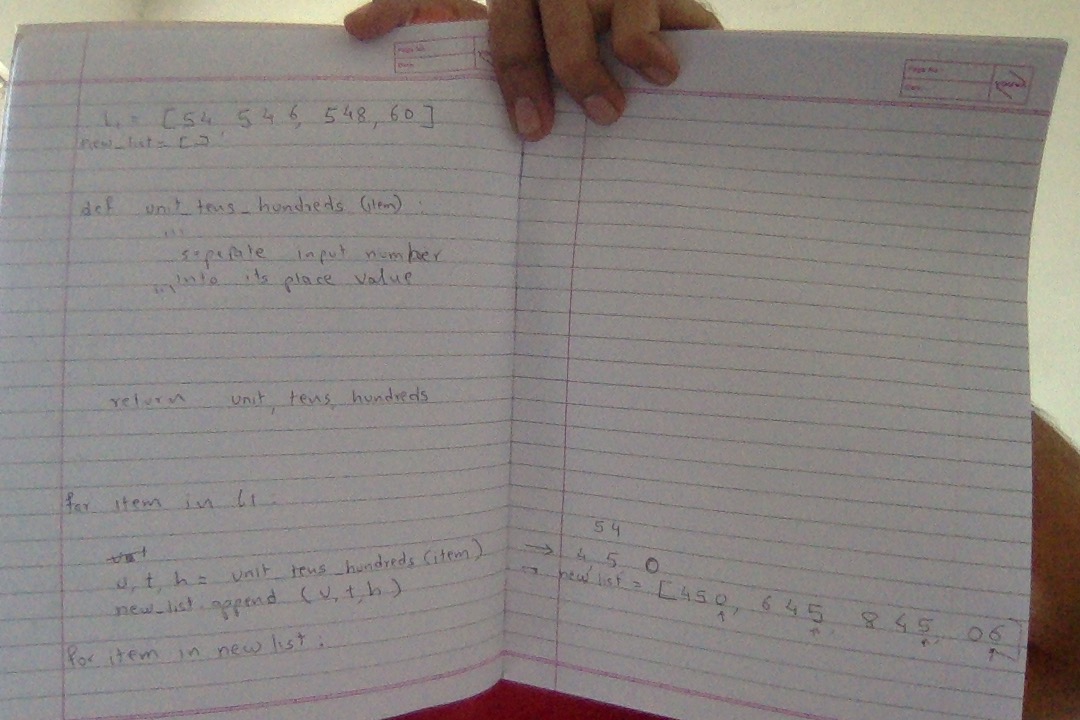 l1 = [54, 546, 548, 60]
new_list = []
def unit_tens_hundreds (item) :
'''
seperate input number
into its place value
'''
return unit, tens, hundreds
for item in l1 :
u, t, h = unit_tens_hundreds (item)
new_list.append (u, t, h)
for item in new list :
Page No.
Date
Page No.
Date
54
→ 4, 5, 0
→ new list = [450, 645, 845, 06]